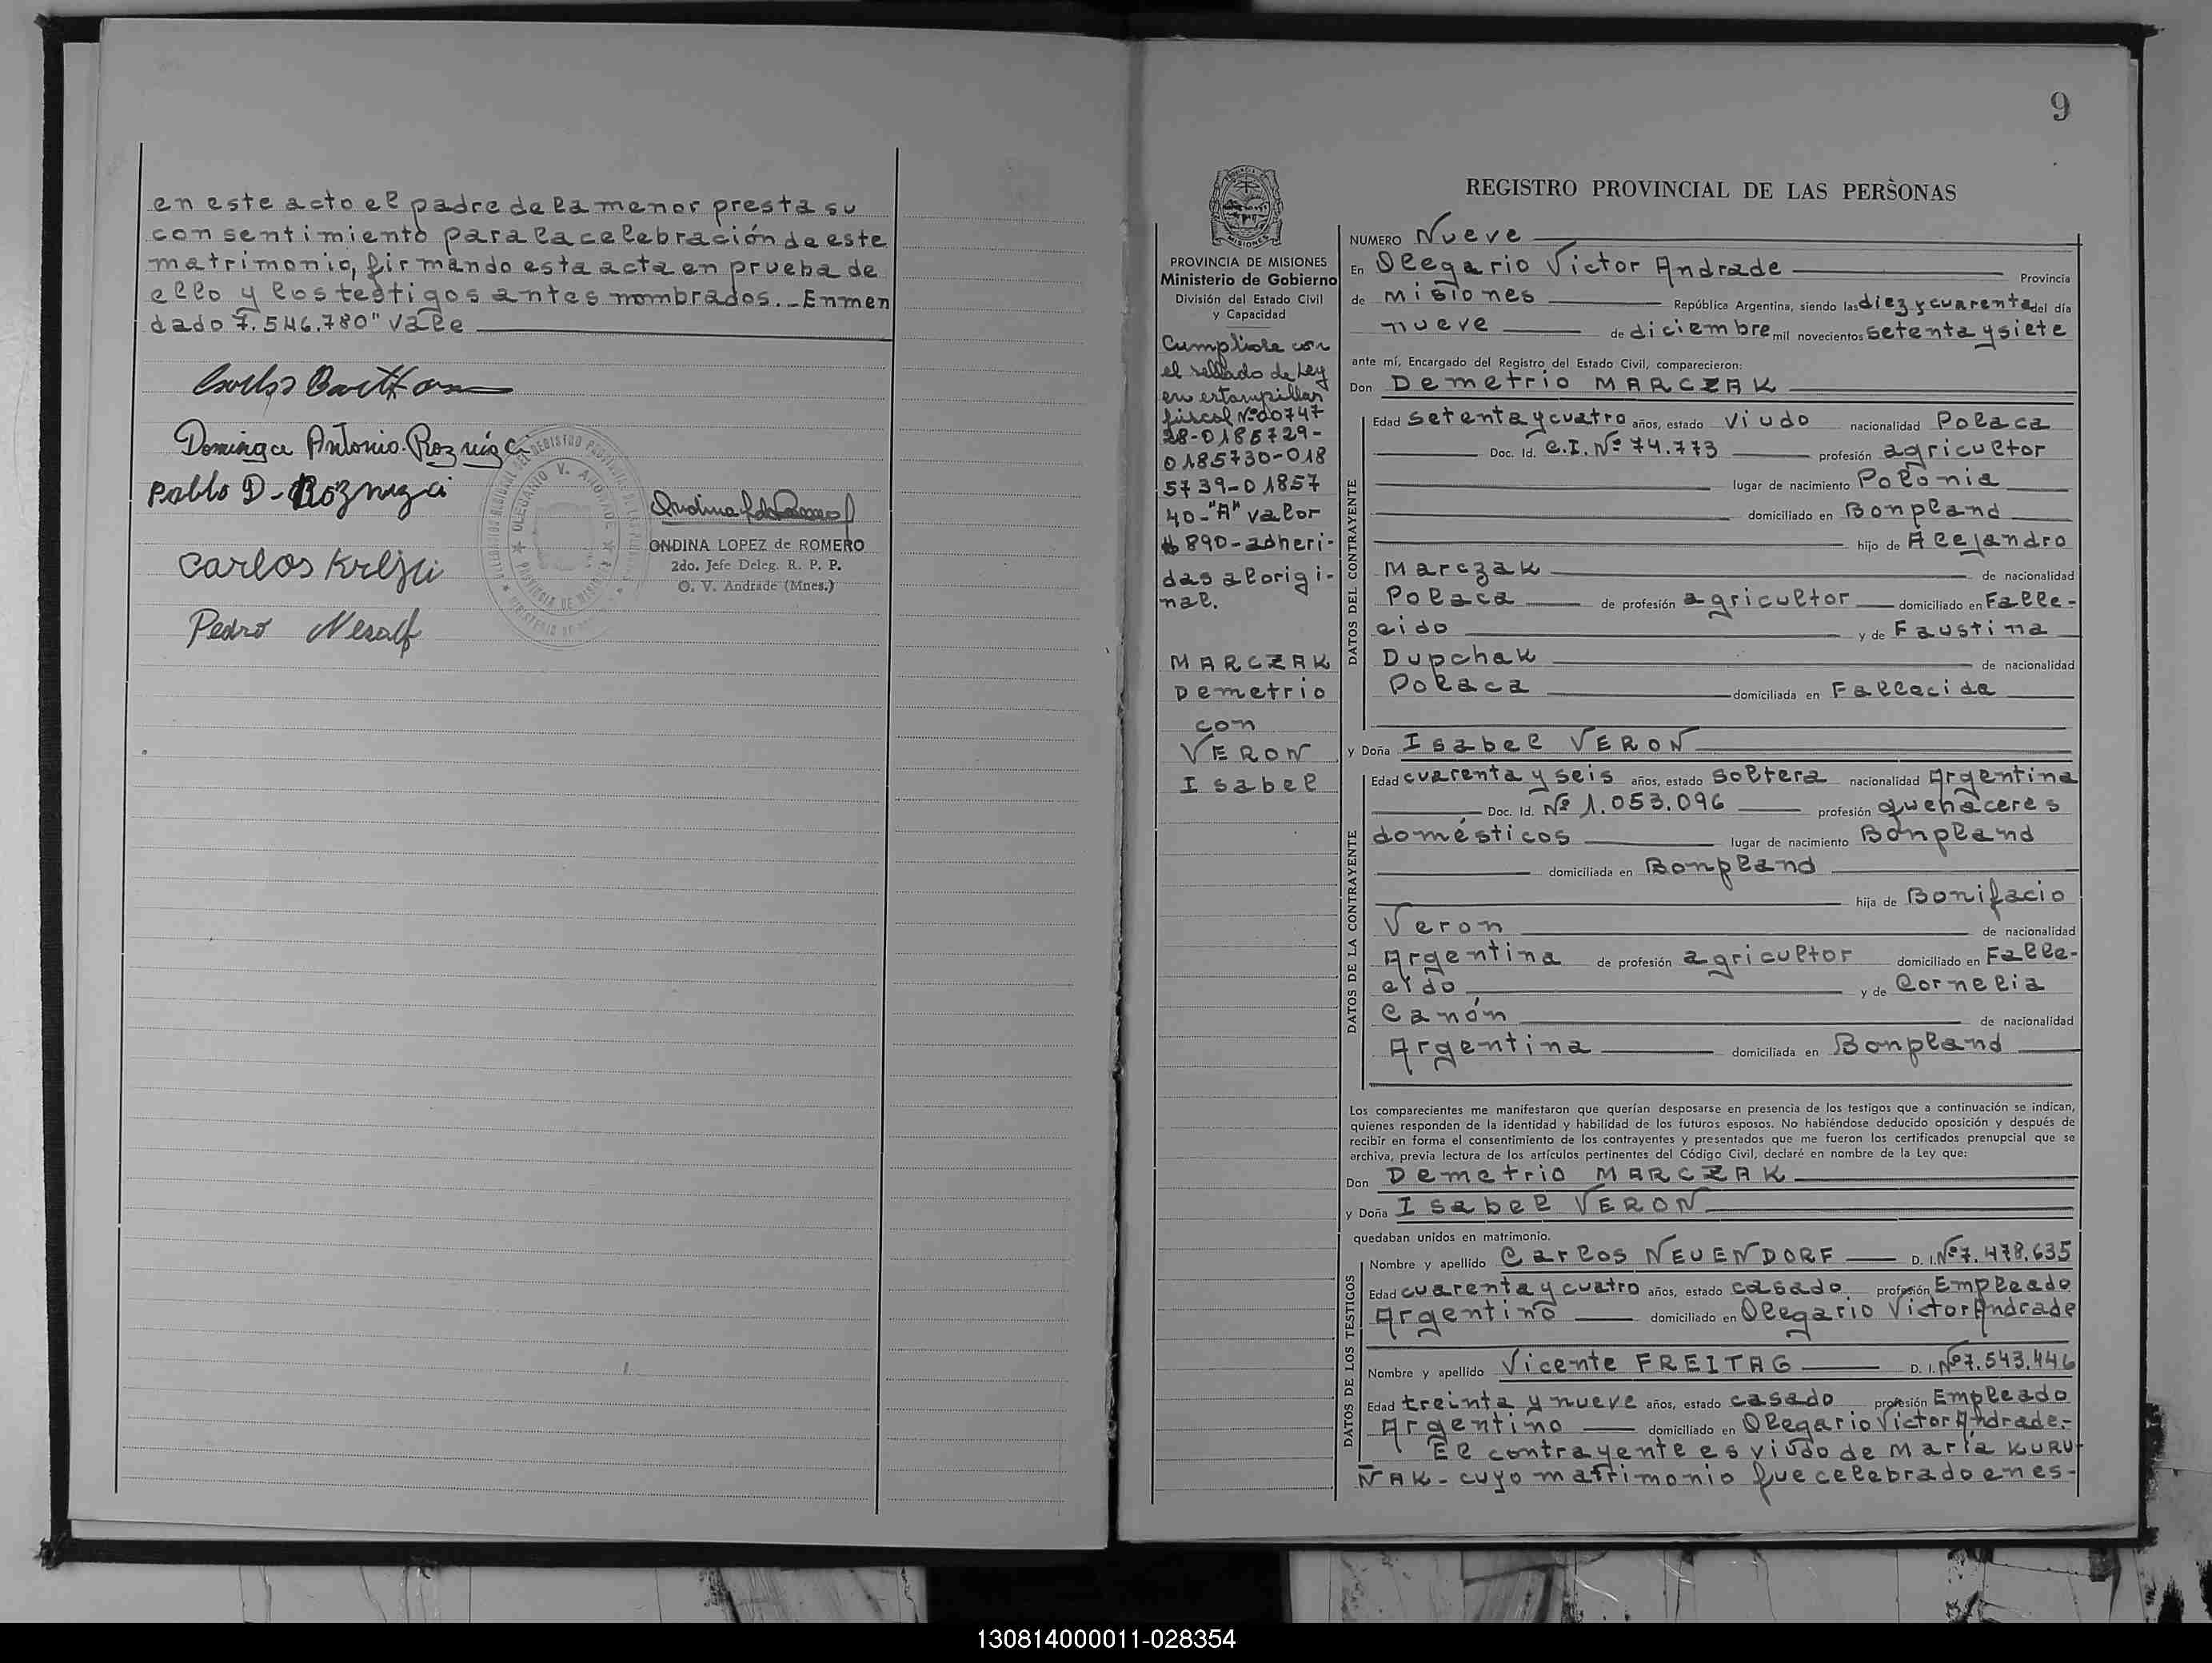 en este acto el padre de la menor presta su
consentimiento para la celebración de este
matrimonio, firmando esta acta en prueba de
ello y los testigos antes nombrados._Enmen
dado 7.546.780" vale
Pablo D. Rozniga
Carlos
Pedro
ONDINA LOPEZ de ROMERO
2do. Jefe Deleg. R. P. P.
O. V. Andrade (Mnes.)
9
REGISTRO PROVINCIAL DE LAS PERSONAS
MISIONES
PROVINCIA DE MISIONES
Ministerio de Gobierno
División del Estado Civil
y Capacidad
Cumpliose con
el sellado de Ley
en estampillas
fiscal Nº 00747
28-0185729-
0185730-018
5739-01857
40-"A" valor
$ 890-adheri-
das al origi-
nal.
MARCZAK
Demetrio
con
VERON
Isabel
NUMERO Nueve
En Olegario Victor Andrade Provincia
de Misiones República Argentina, siendo las diez y cuarenta del día
nueve de diciembre mil novecientos setenta y siete
ante mí, Encargado del Registro del Estado Civil, comparecieron:
Don Demetrio MARCZAK
DATOS DEL CONTRAYENTE
Edad setenta y cuatro años, estado Viudo nacionalidad Polaca
Doc. Id. C.I. Nº 74.773 profesión agricultor
lugar de nacimiento Polonia
domiciliado en Bonpland
hijo de Alejandro
Marczak de nacionalidad
Polaca de profesión agricultor domiciliado en Falle-
cido y de Faustina
Dupchak de nacionalidad
Polaca domiciliada en Fallecida
y Doña Isabel VERON
DATOS DE LA CONTRAYENTE
Edad cuarenta y seis años, estado soltera nacionalidad Argentina
Doc. Id. Nº 1.053.096 profesión quehaceres
domésticos lugar de nacimiento Bonpland
domiciliada en Bonpland
hija de Bonifacio
Veron de nacionalidad
Argentina de profesión agricultor domiciliado en Falle-
cido y de Cornelia
Canón de nacionalidad
Argentina domiciliada en Bonpland
Los comparecientes me manifestaron que querían desposarse en presencia de los testigos que a continuación se indican,
quienes responden de la identidad y habilidad de los futuros esposos. No habiéndose deducido oposición y después de
recibir en forma el consentimiento de los contrayentes y presentados que me fueron los certificados prenupcial que se
archiva, previa lectura de los artículos pertinentes del Código Civil, declaré en nombre de la Ley que:
Don Demetrio MARCZAK
y Doña Isabel VERON
quedaban unidos en matrimonio.
DATOS DE LOS TESTIGOS
Nombre y apellido Carlos NEUENDORF D. I. Nº 7.478.635
Edad cuarenta y cuatro años, estado casado profesión Empleado
Argentino domiciliado en Olegario Victor Andrade
Nombre y apellido Vicente FREITAG D. I. Nº 7.543.446
Edad treinta y nueve años, estado casado profesión Empleado
Argentino domiciliado en Olegario Victor Andrade.-
El contrayente es viudo de María KURU-
ÑAK- cuyo matrimonio fue celebrado en es-
130814000011-028354